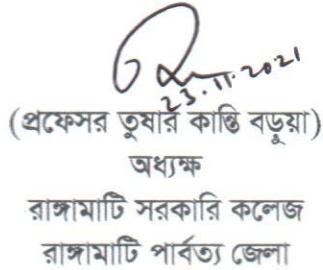 23.11.2021
(প্রফেসর তুষার কান্তি বড়ুয়া)
অধ্যক্ষ
রাঙ্গামাটি সরকারি কলেজ
রাঙ্গামাটি পার্বত্য জেলা